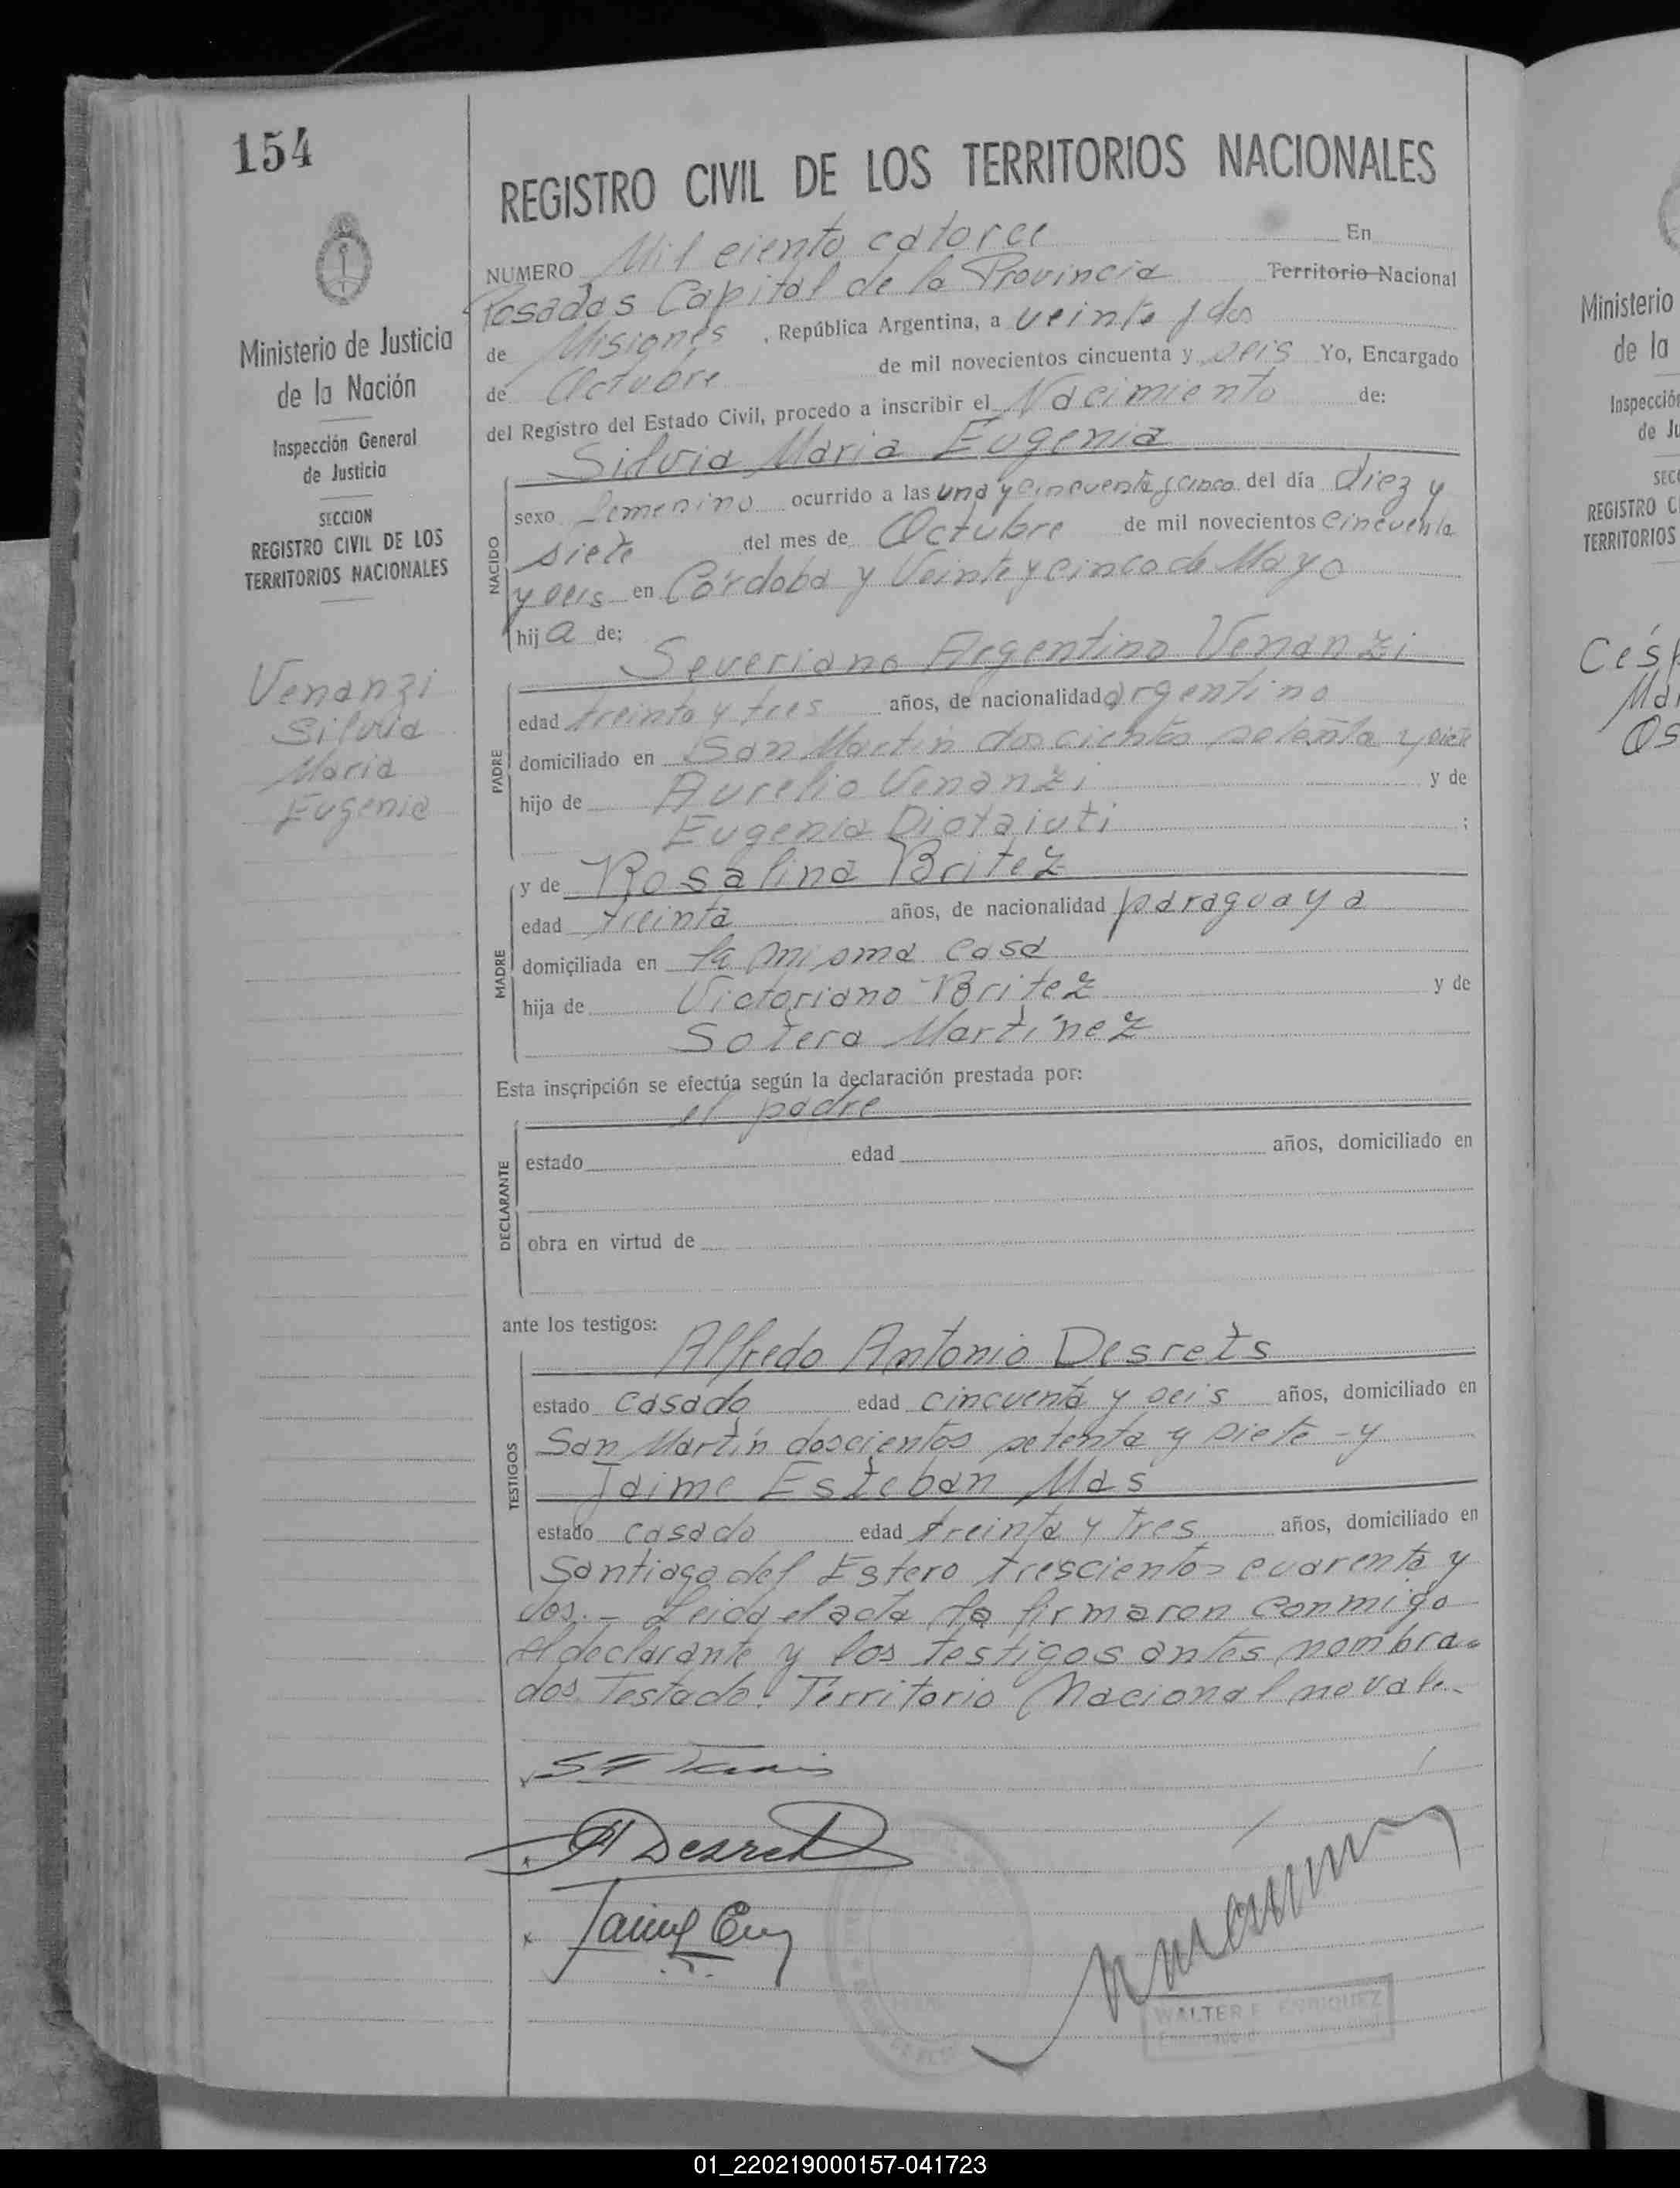 154
REGISTRO CIVIL DE LOS TERRITORIOS NACIONALES
Ministerio de Justicia
de la Nación
Inspección General
de Justicia
SECCION
REGISTRO CIVIL DE LOS
TERRITORIOS NACIONALES
Venanzi
Silvia
Maria
Eugenia
NUMERO Mil ciento catorce En
Posadas Capital de la Provincia Territorio Nacional
de Misiones, República Argentina, a veinte y dos
de Octubre de mil novecientos cincuenta y seis Yo, Encargado
del Registro del Estado Civil, procedo a inscribir el Nacimiento de:
Silvia Maria Eugenia
NACIDO
sexo femenino ocurrido a las una y cincuenta y cinco del día diez y
siete del mes de Octubre de mil novecientos cincuenta
y seis en Córdoba y Veinte y cinco de Mayo
hija de:
Severiano Argentino Venanzi
PADRE
edad treinta y tres años, de nacionalidad argentino
domiciliado en San Martín doscientos setenta y siete
hijo de Aurelio Venanzi y de
Eugenia Diotaiuti ;
y de Rosalina Britez
MADRE
edad treinta años, de nacionalidad paraguaya
domiciliada en la misma casa
hija de Victoriano Britez y de
Sotera Martínez
Esta inscripción se efectúa según la declaración prestada por:
el padre
DECLARANTE
estado edad años, domiciliado en
obra en virtud de
ante los testigos:
Alfredo Antonio Desrets
TESTIGOS
estado casado edad cincuenta y seis años, domiciliado en
San Martín doscientos setenta y siete - y
Jaime Esteban Mas
estado casado edad treinta y tres años, domiciliado en
Santiago del Estero trescientos cuarenta y
dos.- Leida el acta la firmaron conmigo
el declarante y los testigos antes nombra-
dos. Testado: Territorio Nacional no vale.-
A Desrets
WALTER F. ENRIQUEZ
Ministerio
de la
Inspección
de Ju
SECC
REGISTRO C
TERRITORIOS
Césp
Mar
Os
01_220219000157-041723